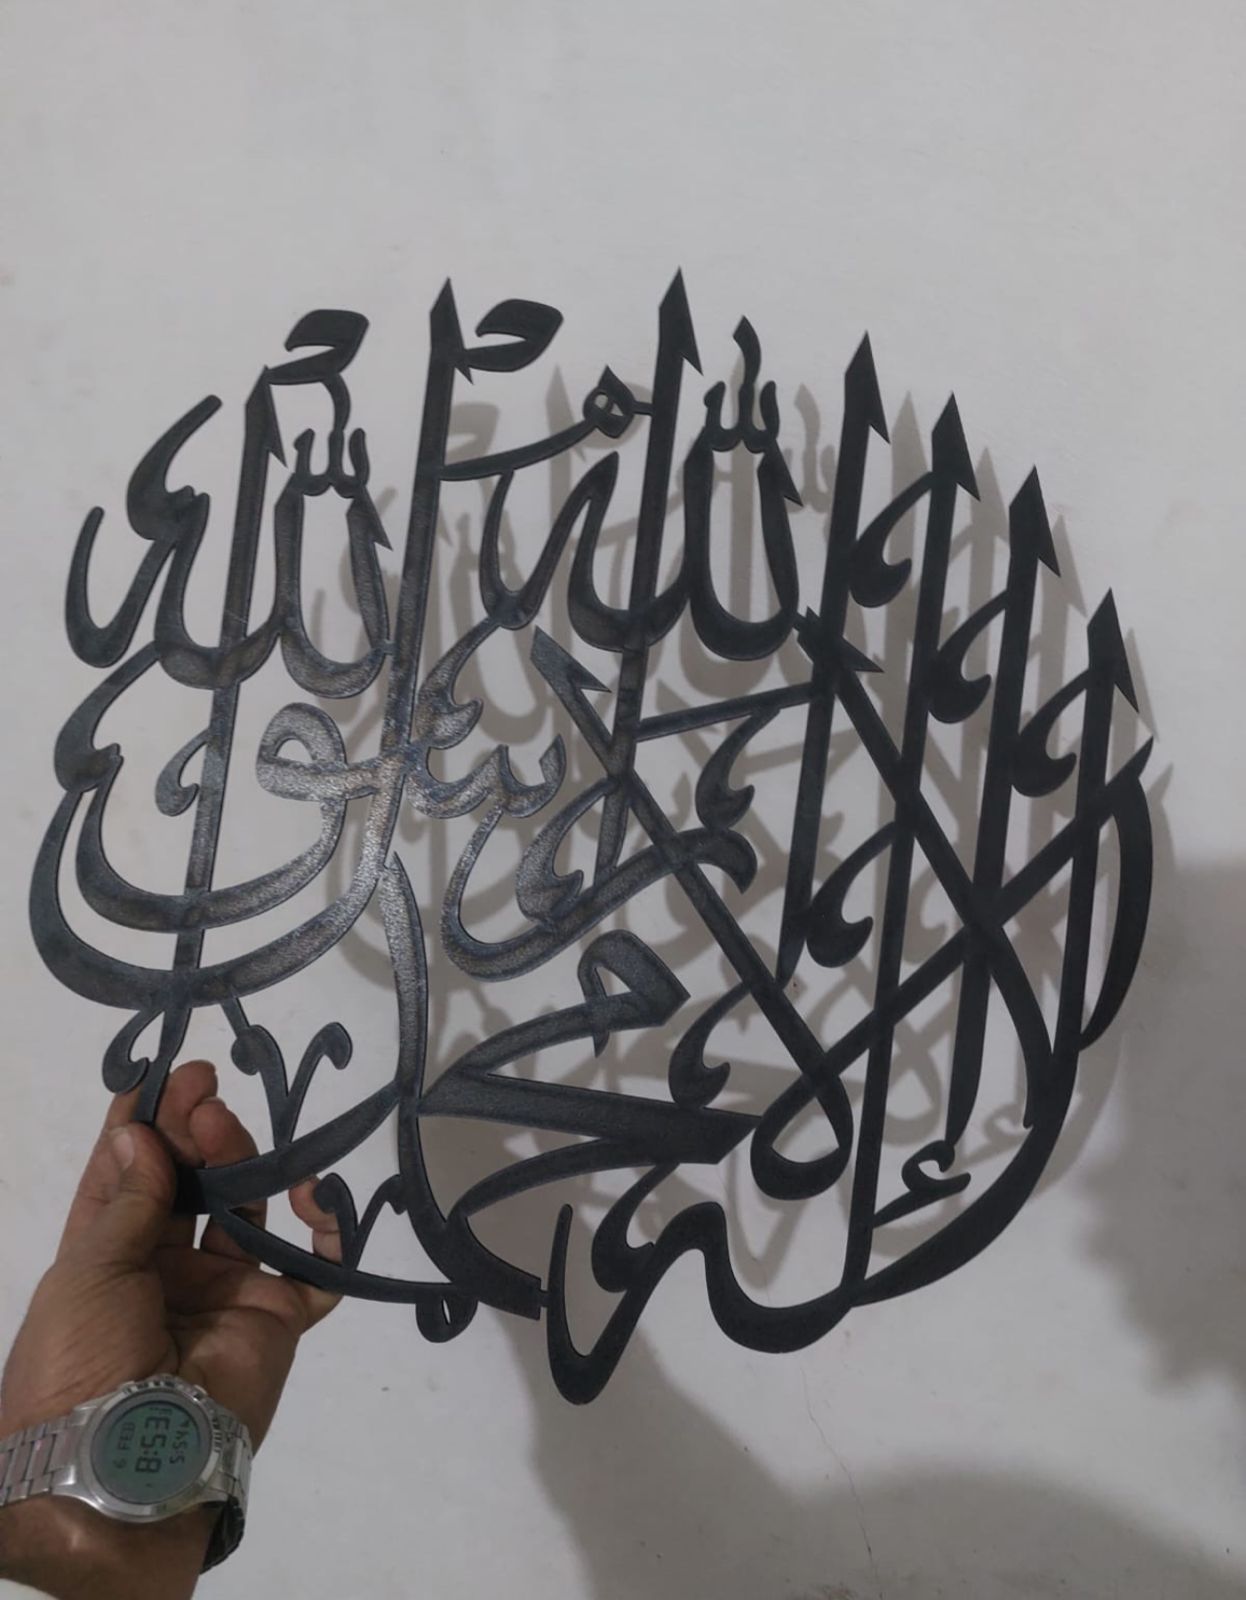 لا إله إلا الله محمد رسول الله
6 FEB
8:53
5:54